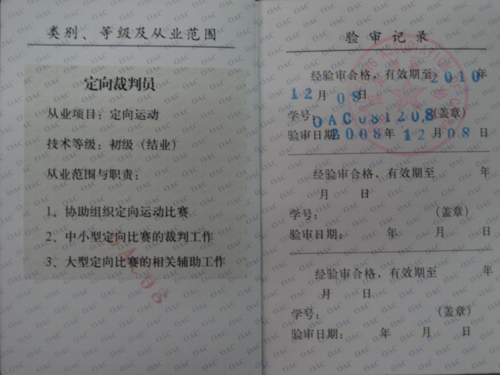 类别、等级及从业范围
定向裁判员
从业项目：定向运动
技术等级：初级（结业）
从业范围与职责：
1、协助组织定向运动比赛
2、中小型定向比赛的裁判工作
3、大型定向比赛的相关辅助工作
验审记录
经验审合格，有效期至2010年
12月08日
学号：OAC081208（盖章）
验审日期：2008年12月08日
经验审合格，有效期至 年
月 日
学号： （盖章）
验审日期： 年 月 日
经验审合格，有效期至 年
月 日
学号： （盖章）
验审日期： 年 月 日